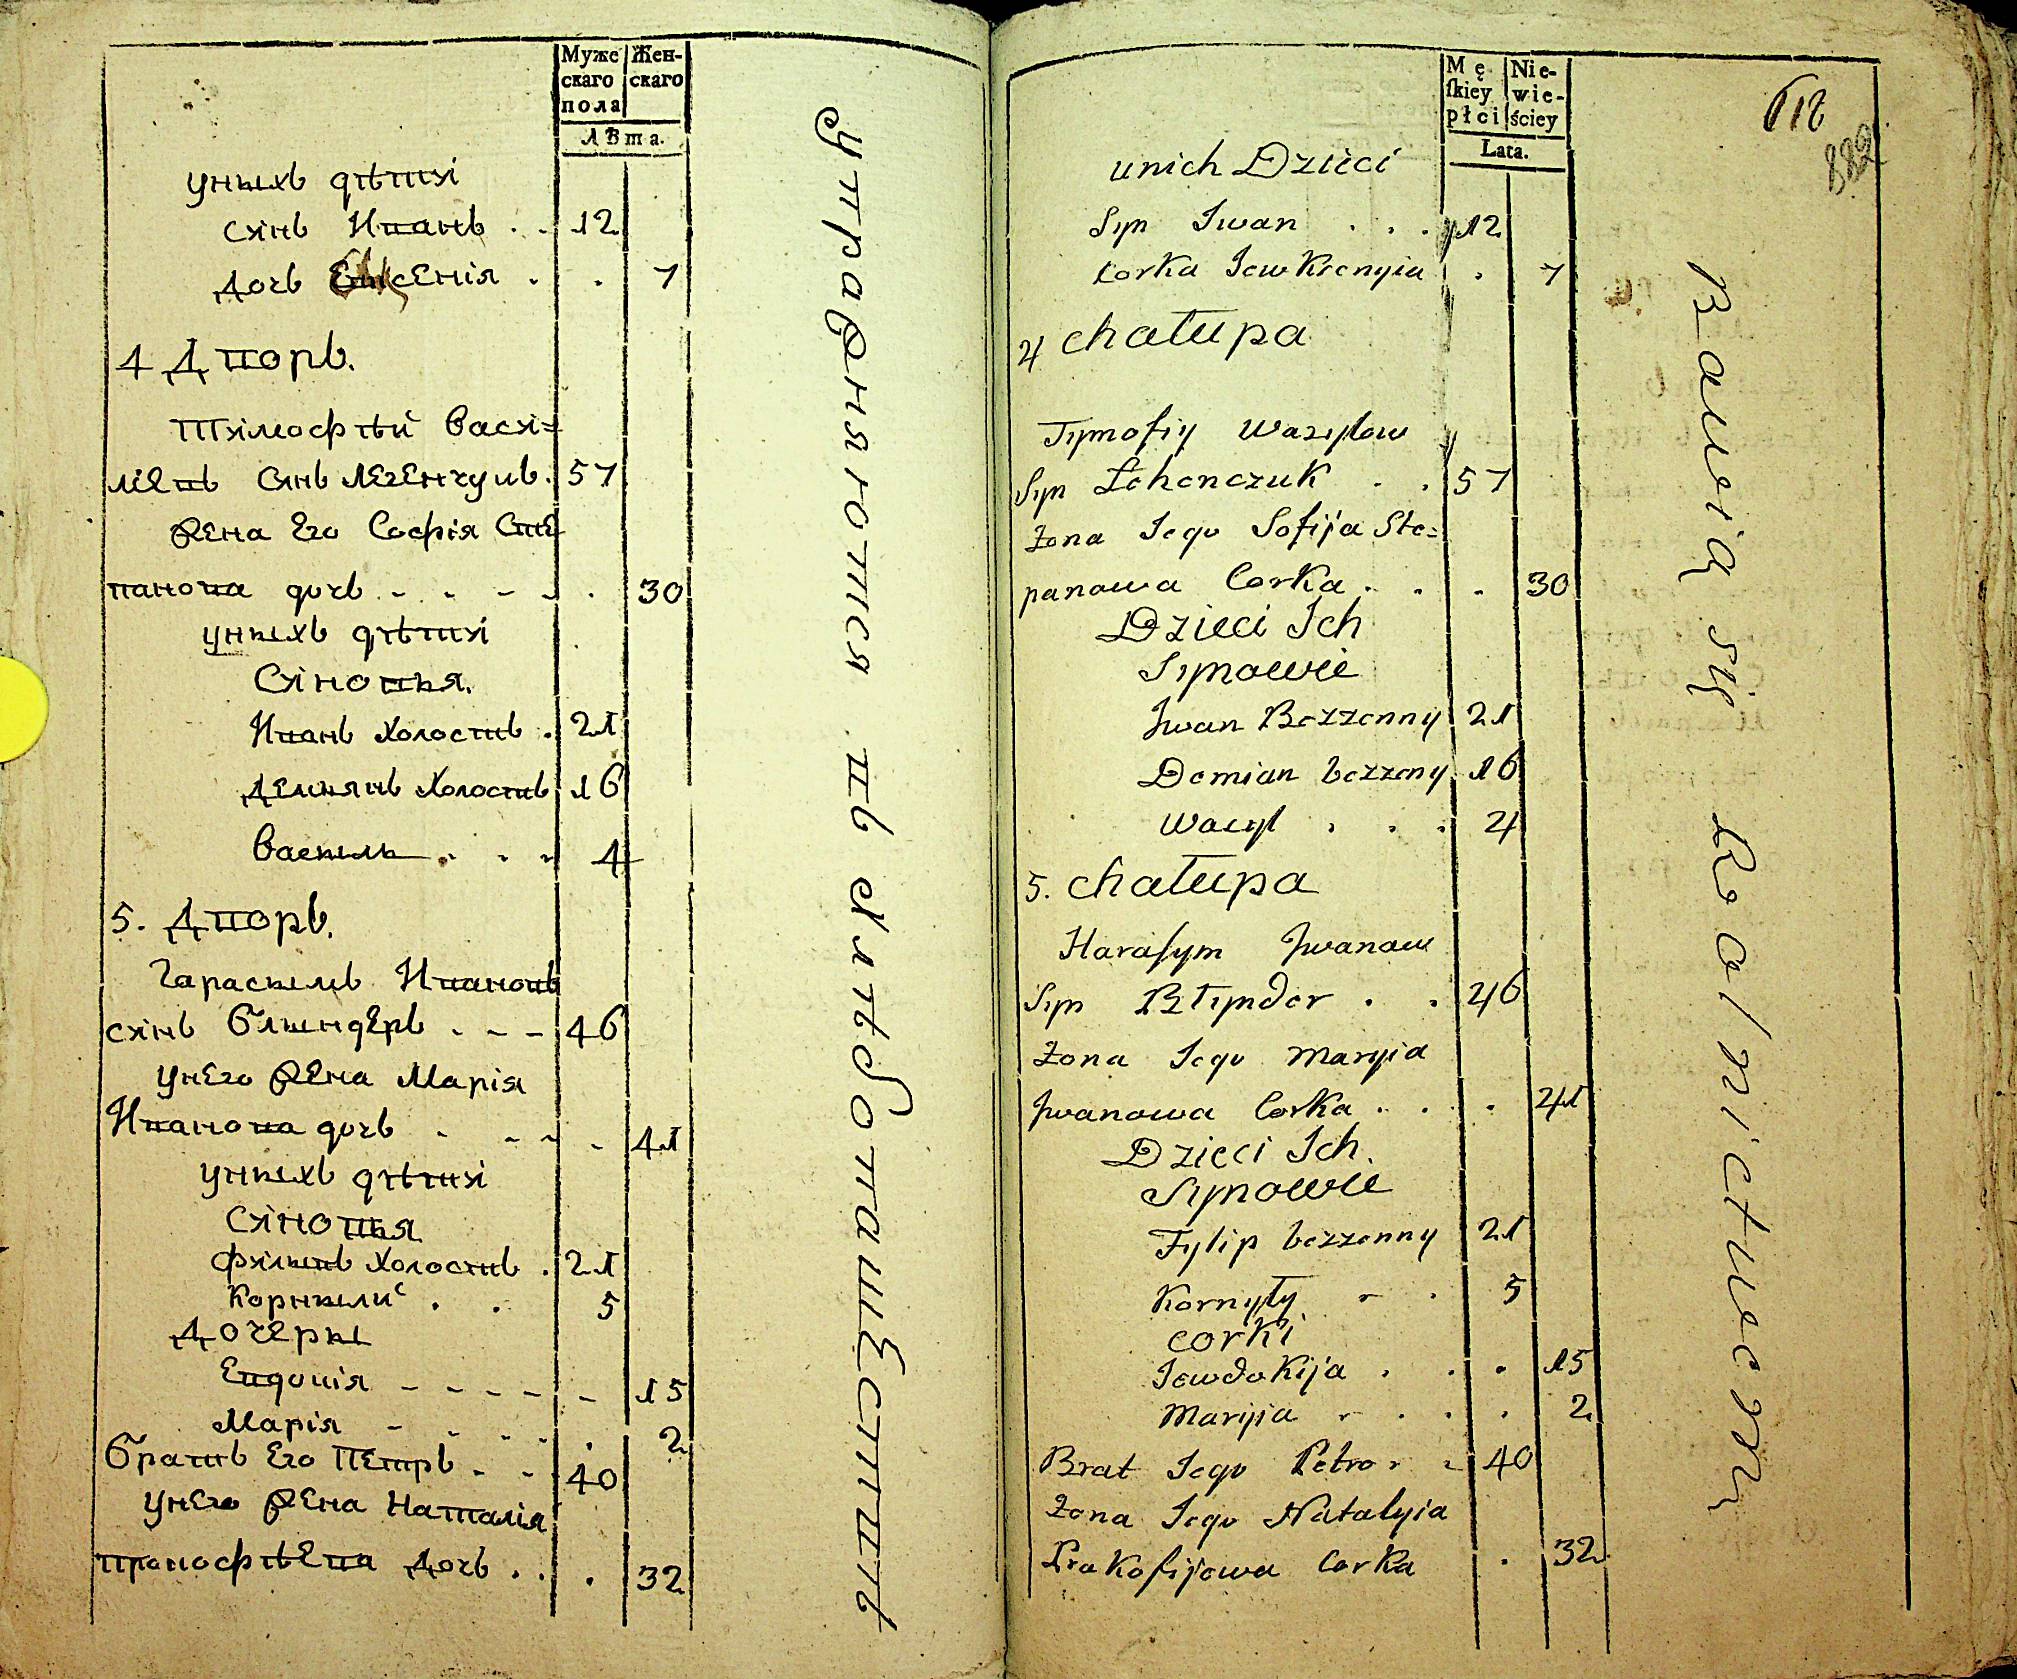 Муже Жен-
скаго скаго
пола
Лѣта.
уныхъ дѣтяі
сянь Иванъ . . 12
дочь Евксенія . . 7
4 Дворъ.
Тямофѣй васи=
лієвъ сянъ Легенчукъ. 57
Жена Его Софія Сте
панова дочь - - - - . 30
уныхъ дѣтяі
Сяновья.
Иванъ холостъ . 21
Демьянъ холостъ 16
васыль . - - 4
5. Дворъ.
Гарасымъ Ивановъ
сянъ Блындеръ . - - 46
унего Жена Марія
Иванова дочь . - - . 41
уныхъ дѣтяі
Сяновья
Фялыпъ холостъ . 21
Корнылій . . 5
Дочеры
Евдокія - - - - - - 15
Марія - - - - . 2
братъ Его Петръ . - 40
унего Жена Наталія
прокофѣева дочь . . . 32
упражняются въ хлѣбопашествѣ
Mę Nie-
ſkiey wie-
płci ściey
Lata.
618
882
unich Dzieci
Syn Iwan . . . 12
Corka Iewksenyia . 7
4 chałupa
Tymofiy Wasylow
Syn Lehenczuk . . 57
Żona Iego Sofija Ste=
panowa Corka . . . 30
Dzieci Ich
Synowie
Iwan Bezzenny 21
Demian bezzeny 16
Wasyl . . . 4
5. chałupa
Haraſym Iwanow
Syn Błynder . . 46
Żona Iego Maryia
Iwanowa Corka . . . 41
Dzieci Ich.
Synowie
Fylip bezzenny 21
Kornyły - . 5
corki
Iewdokija . . . 15
Maryia - . . . 2
Brat Iego Petro . - 40
Żona Iego Natalyia
Prakofijowa Corka . 32
Bawią się Rolnictwem